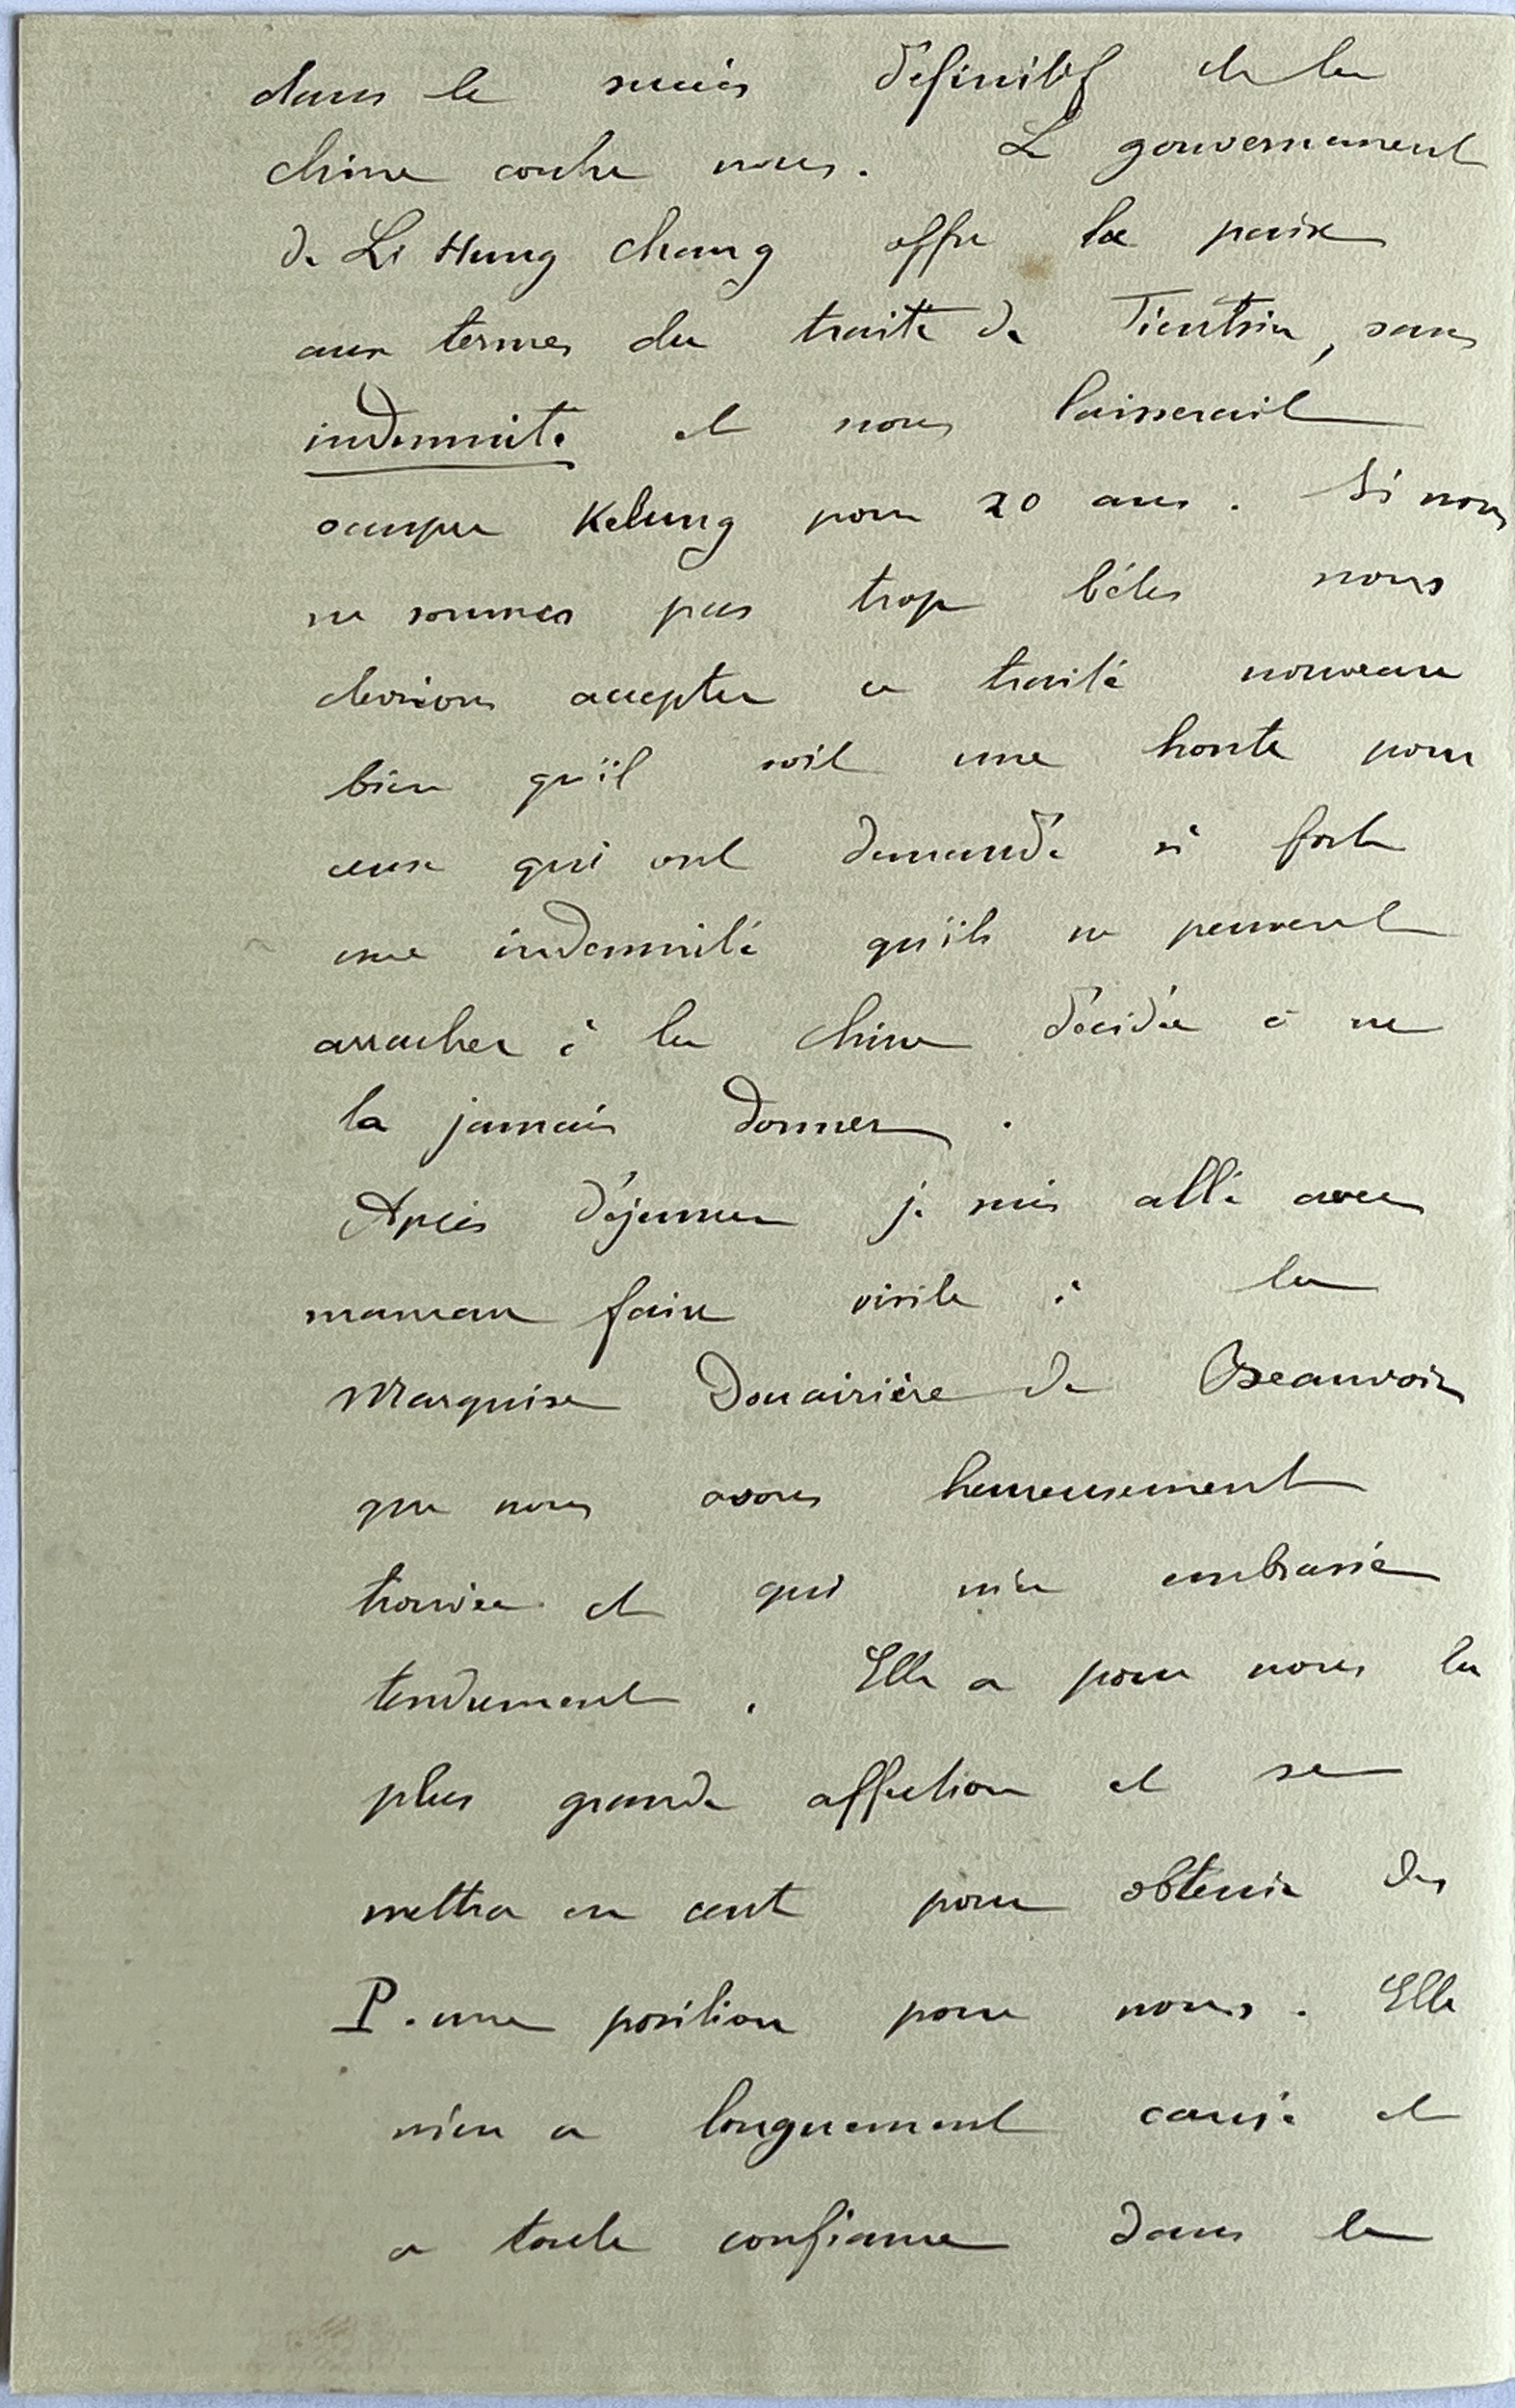 dans le succès définitif de la
chine contre nous. Le gouvernement
de Li Hung Chang offre la paix
aux termes du traité de Tientsin, sans
indemnité et nous laisserait
occuper Kelung pour 20 ans. Si nous
ne sommes pas trop bêtes nous
devrions accepter ce traité nouveau
bien qu'il soit une honte pour
ceux qui ont demandé si fort
une indemnité qu'ils ne peuvent
arracher à la Chine décidée à ne
la jamais donner.
Après déjeuner je suis allé avec
maman faire visite à la
Marquise Douairière de Beauvoir
que nous avons heureusement
trouvée et qui m'a embrassé
tendrement. Elle a pour nous la
plus grande affection et se
mettra en cent pour obtenir des
P. une position pour nous. Elle
m'en a longuement causé et
a toute confiance dans le